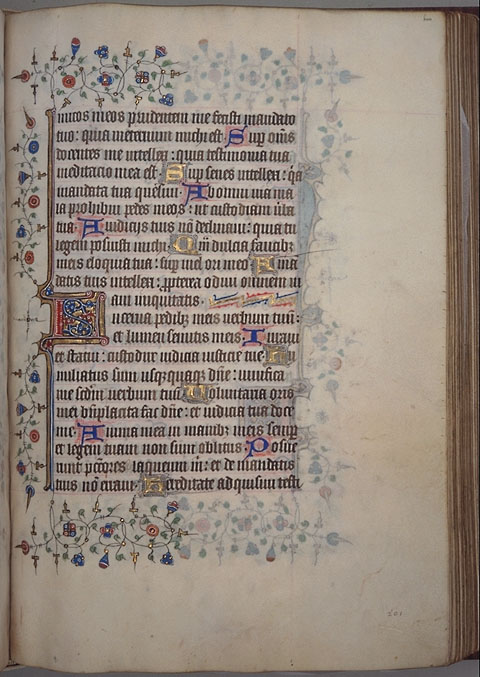 micos meos prudentem me fecisti mandato
tuo: quia in eternum michi est. Sup̄ om̄s
docentes me intellexi: quia testimonia tua
meditatio mea est. Sup̄ senes intellexi: q̄a
mandata tua quesiui. Ab omni uia ma
la prohibui pedes meos: ut custodiam u̅ba
tua. A iudicijs tuis nō declinaui: quia tu
legem posuisti michi. Qm̄ dulcia faucib;
meis eloquia tua: sup̄ mel ori meo. A man
datis tuis intellexi: ꝓpterea odiui omnem ui
am iniquitatis.
Lucerna pedib; meis uerbum tuū:
et lumen semitis meis. Iuraui
et statui: custodire iudicia iusticie tue. Hu
miliatus sum usq; quaq; dn̄e: uiuifica
me scd̄m uerbum tuū. Voluntaria oris
mei bn̄placita fac dn̄e: et iudicia tua doce
me. Anima mea in manib; meis semp̄
et legem tuam non sum oblitus. Posue
runt pc̄c̄ores laqueum m̄: et de mandatis
tuis nō erraui. Hereditate adquisiui testi